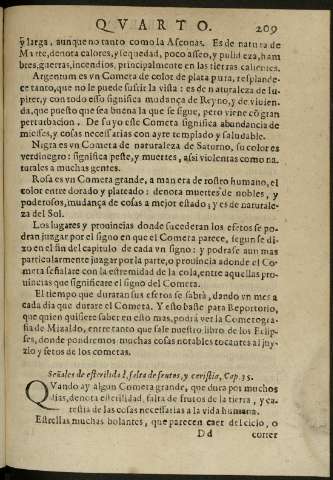 QVARTO. 209
y larga, aunque no tanto como la Asconas. Es de natura de
Marte, denota calores, y sequedad, poco asseo, y pulideza, ham
bres, guerras, incendios, principalmente en las tierras calientes.
Argentum es vn Cometa de color de plata pura, resplande-
ce tanto, que no le puede sufrir la vista: es de naturaleza de Iu-
piter, y con todo esso significa mudança de Reyno, y de viuien-
da, que puesto que sea buena la que se sigue, pero viene cõ gran
perturbacion. De suyo este Cometa significa abundancia de
miesses, y cosas necessarias con ayre templado y saludable.
Nigra es vn Cometa de naturaleza de Saturno, su color es
verdinegro: significa peste, y muertes, assi violentas como na-
turales a muchas gentes.
Rosa es vn Cometa grande, a manera de rostro humano, el
color entre dorado y plateado: denota muertes de nobles, y
poderosos, mudança de cosas a mejor estado; y es de naturale-
za del Sol.
Los lugares y prouincias donde sucederan los efetos se po-
dran juzgar por el signo en que el Cometa parece, segun se di-
zo en el fin del capitulo de cada vn signo: y podrase aun mas
particularmente juzgar por la parte, o prouincia adonde el Co-
meta señalare con la estremidad de la cola, entre aquellas pro-
uincias que significare el signo del Cometa.
El tiempo que duraran sus efetos se sabrà, dando vn mes a
cada dia que durare el Cometa. Y esto baste para Reportorio,
que quien quisiere saber en esto mas, podrà ver la Cometogra-
fia de Mizaldo, entre tanto que sale nuestro libro de los Eclip-
ses, donde pondremos muchas cosas notables tocantes al juy-
zio y fetos de los cometas.
Señales de esterilidad, falta de frutos, y caristia, Cap. 35.
QVando ay algun Cometa grande, que dura por muchos
dias, denota esterilidad, falta de frutos de la tierra, y ca-
restia de las cosas necessarias a la vida humana.
Estrellas muchas bolantes, que parecen caer del cielo, o
Dd correr